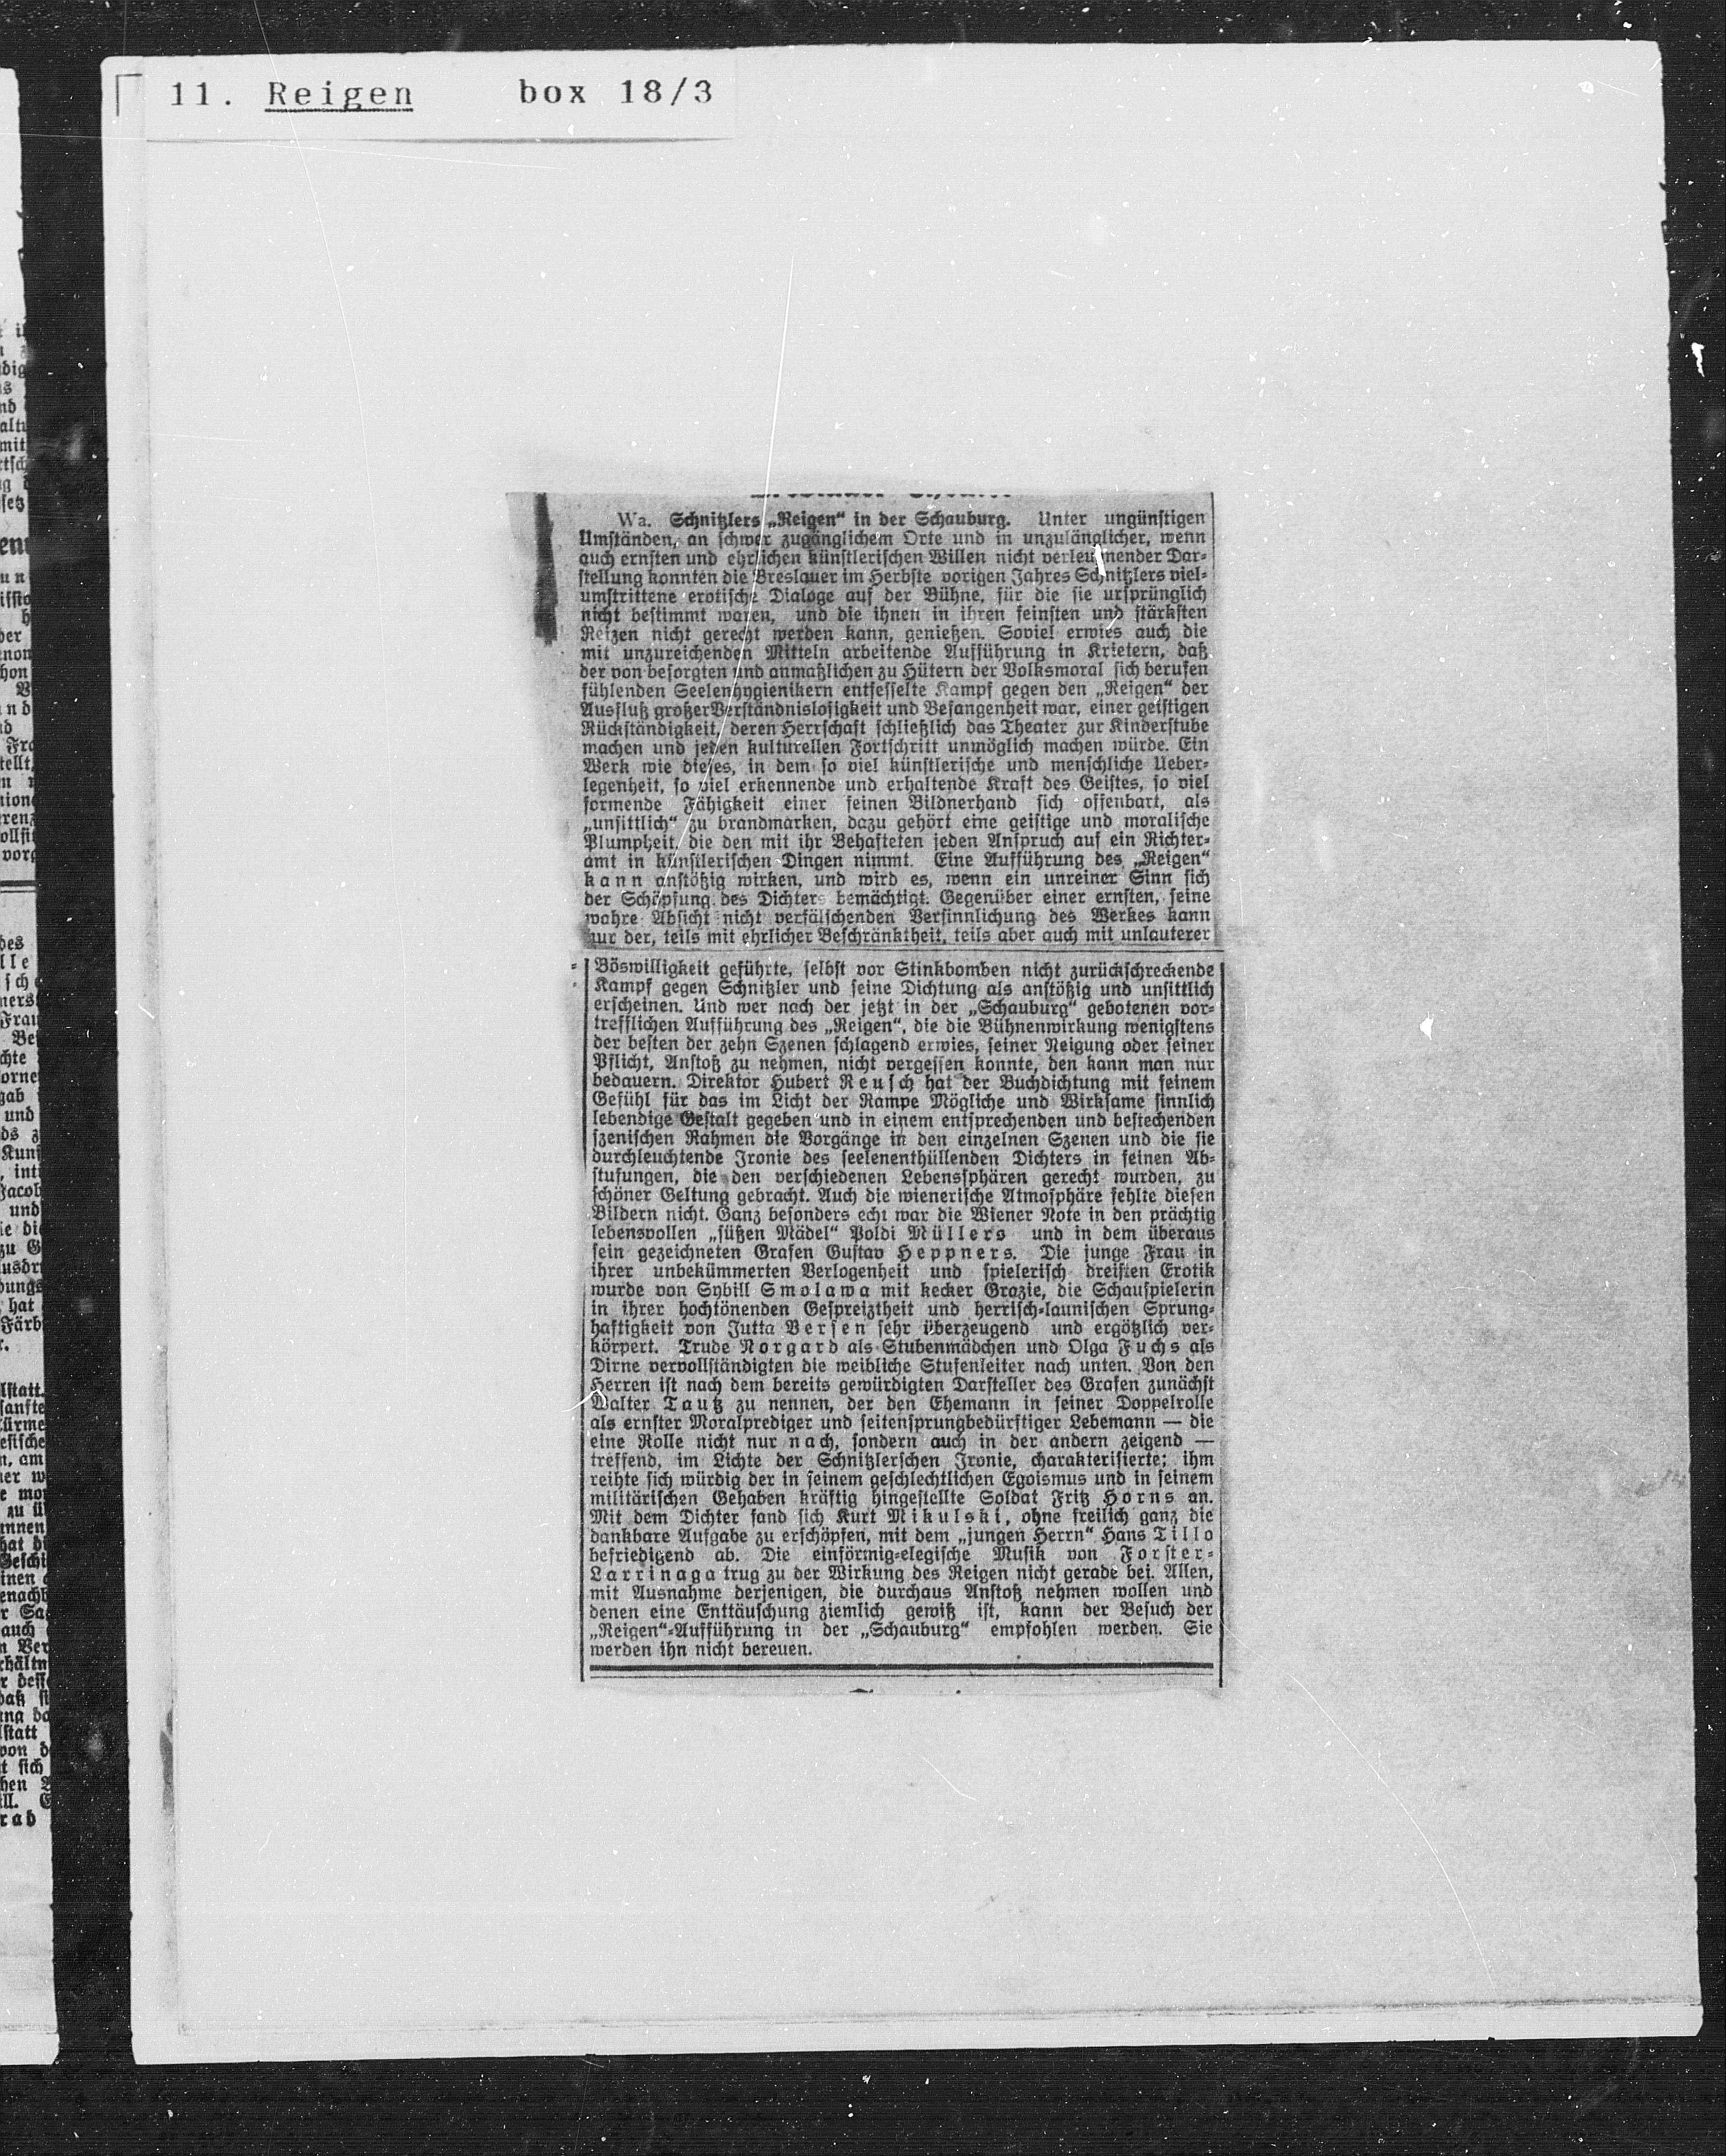 11. Reigen box 18/3
Wa. Schnitzlers „Reigen“ in der Schauburg. Unter ungünstigen
Umständen, an schwer zugänglichem Orte und in unzulänglicher, wenn
auch ernsten und ehrlichen künstlerischen Willen nicht verleugnender Dar-
stellung konnten die Breslauer im Herbste vorigen Jahres Schnitzlers viel-
umstrittene erotische Dialoge auf der Bühne, für die sie ursprünglich
nicht bestimmt waren, und die ihnen in ihren feinsten und stärksten
Reizen nicht gerecht werden kann, genießen. Soviel erwies auch die
mit unzureichenden Mitteln arbeitende Aufführung in Krietern, daß
der von besorgten und anmaßlichen zu Hütern der Volksmoral sich berufen
fühlenden Seelenhygienikern entfesselte Kampf gegen den „Reigen“ der
Ausfluß großer Verständnislosigkeit und Befangenheit war, einer geistigen
Rückständigkeit, deren Herrschaft schließlich das Theater zur Kinderstube
machen und jeden kulturellen Fortschritt unmöglich machen würde. Ein
Werk wie dieses, in dem so viel künstlerische und menschliche Ueber-
legenheit, so viel erkennende und erhaltende Kraft des Geistes, so viel
formende Fähigkeit einer feinen Bildnerhand sich offenbart, als
„unsittlich“ zu brandmarken, dazu gehört eine geistige und moralische
Plumpheit, die den mit ihr Behafteten jeden Anspruch auf ein Richter-
amt in künstlerischen Dingen nimmt. Eine Aufführung des „Reigen“
kann anstößig wirken, und wird es, wenn ein unreiner Sinn sich
der Schöpfung des Dichters bemächtigt. Gegenüber einer ernsten, seine
wahre Absicht nicht verfälschenden Versinnlichung des Werkes kann
nur der, teils mit ehrlicher Beschränktheit, teils aber auch mit unlauterer
Böswilligkeit geführte, selbst vor Stinkbomben nicht zurückschreckende
Kampf gegen Schnitzler und seine Dichtung als anstößig und unsittlich
erscheinen. Und wer nach der jetzt in der „Schauburg“ gebotenen vor-
trefflichen Aufführung des „Reigen“, die die Bühnenwirkung wenigstens
der besten der zehn Szenen schlagend erwies, seiner Neigung oder seiner
Pflicht, Anstoß zu nehmen, nicht vergessen konnte, den kann man nur
bedauern. Direktor Hubert Reusch hat der Buchdichtung mit feinem
Gefühl für das im Licht der Rampe Mögliche und Wirksame sinnlich
lebendige Gestalt gegeben und in einem entsprechenden und bestechenden
szenischen Rahmen die Vorgänge in den einzelnen Szenen und die sie
durchleuchtende Ironie des seelenenthüllenden Dichters in feinen Ab-
stufungen, die den verschiedenen Lebenssphären gerecht wurden, zu
schöner Geltung gebracht. Auch die wienerische Atmosphäre fehlte diesen
Bildern nicht. Ganz besonders echt war die Wiener Note in den prächtig
lebensvollen „süßen Mädel“ Poldi Müllers und in dem überaus
fein gezeichneten Grafen Gustav Heppners. Die junge Frau in
ihrer unbekümmerten Verlogenheit und spielerisch dreisten Erotik
wurde von Sybill Smolawa mit kecker Grazie, die Schauspielerin
in ihrer hochtönenden Gespreiztheit und herrisch-launischen Sprung-
haftigkeit von Jutta Versen sehr überzeugend und ergötzlich ver-
körpert. Trude Norgard als Stubenmädchen und Olga Fuchs als
Dirne vervollständigten die weibliche Stufenleiter nach unten. Von den
Herren ist nach dem bereits gewürdigten Darsteller des Grafen zunächst
Walter Tautz zu nennen, der den Ehemann in seiner Doppelrolle
als ernster Moralprediger und seitensprungbedürftiger Lebemann — die
eine Rolle nicht nur nach, sondern auch in der andern zeigend —
treffend, im Lichte der Schnitzlerschen Ironie, charakterisierte; ihm
reihte sich würdig der in seinem geschlechtlichen Egoismus und in seinem
militärischen Gehaben kräftig hingestellte Soldat Fritz Horns an.
Mit dem Dichter fand sich Kurt Mikulski, ohne freilich ganz die
dankbare Aufgabe zu erschöpfen, mit dem „jungen Herrn“ Hans Tillo
befriedigend ab. Die einförmig-elegische Musik von Forster-
Larrinaga trug zu der Wirkung des Reigen nicht gerade bei. Allen,
mit Ausnahme derjenigen, die durchaus Anstoß nehmen wollen und
denen eine Enttäuschung ziemlich gewiß ist, kann der Besuch der
„Reigen“-Aufführung in der „Schauburg“ empfohlen werden. Sie
werden ihn nicht bereuen.